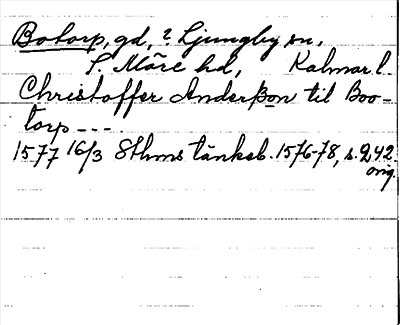 Botorp, gd, i Ljungby sn,
S. Möre hd, Kalmar l.
Christoffer Anderßon til Boo-
torp ---.
1577 16/3 Sthms tänkeb. 1576-78, s. 242.
orig.